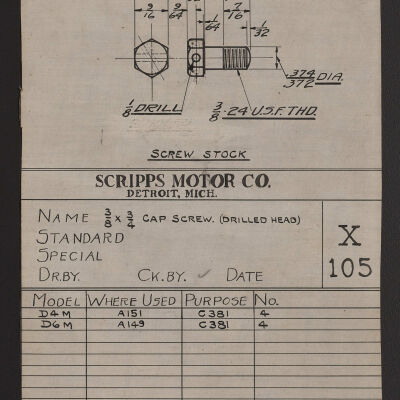 9/16 9/64 7/16
1/64 1/32
.374 DIA.
.372
1/8 DRILL 3/8 - 24 U.S.F. THD.
SCREW STOCK
SCRIPPS MOTOR CO.
DETROIT, MICH.
NAME 3/8 x 3/4 CAP SCREW. (DRILLED HEAD)
STANDARD
SPECIAL
DR.BY. CK.BY. ✓ DATE
X
105
MODEL WHERE USED PURPOSE NO.
D4M A151 C381 4
D6M A149 C381 4